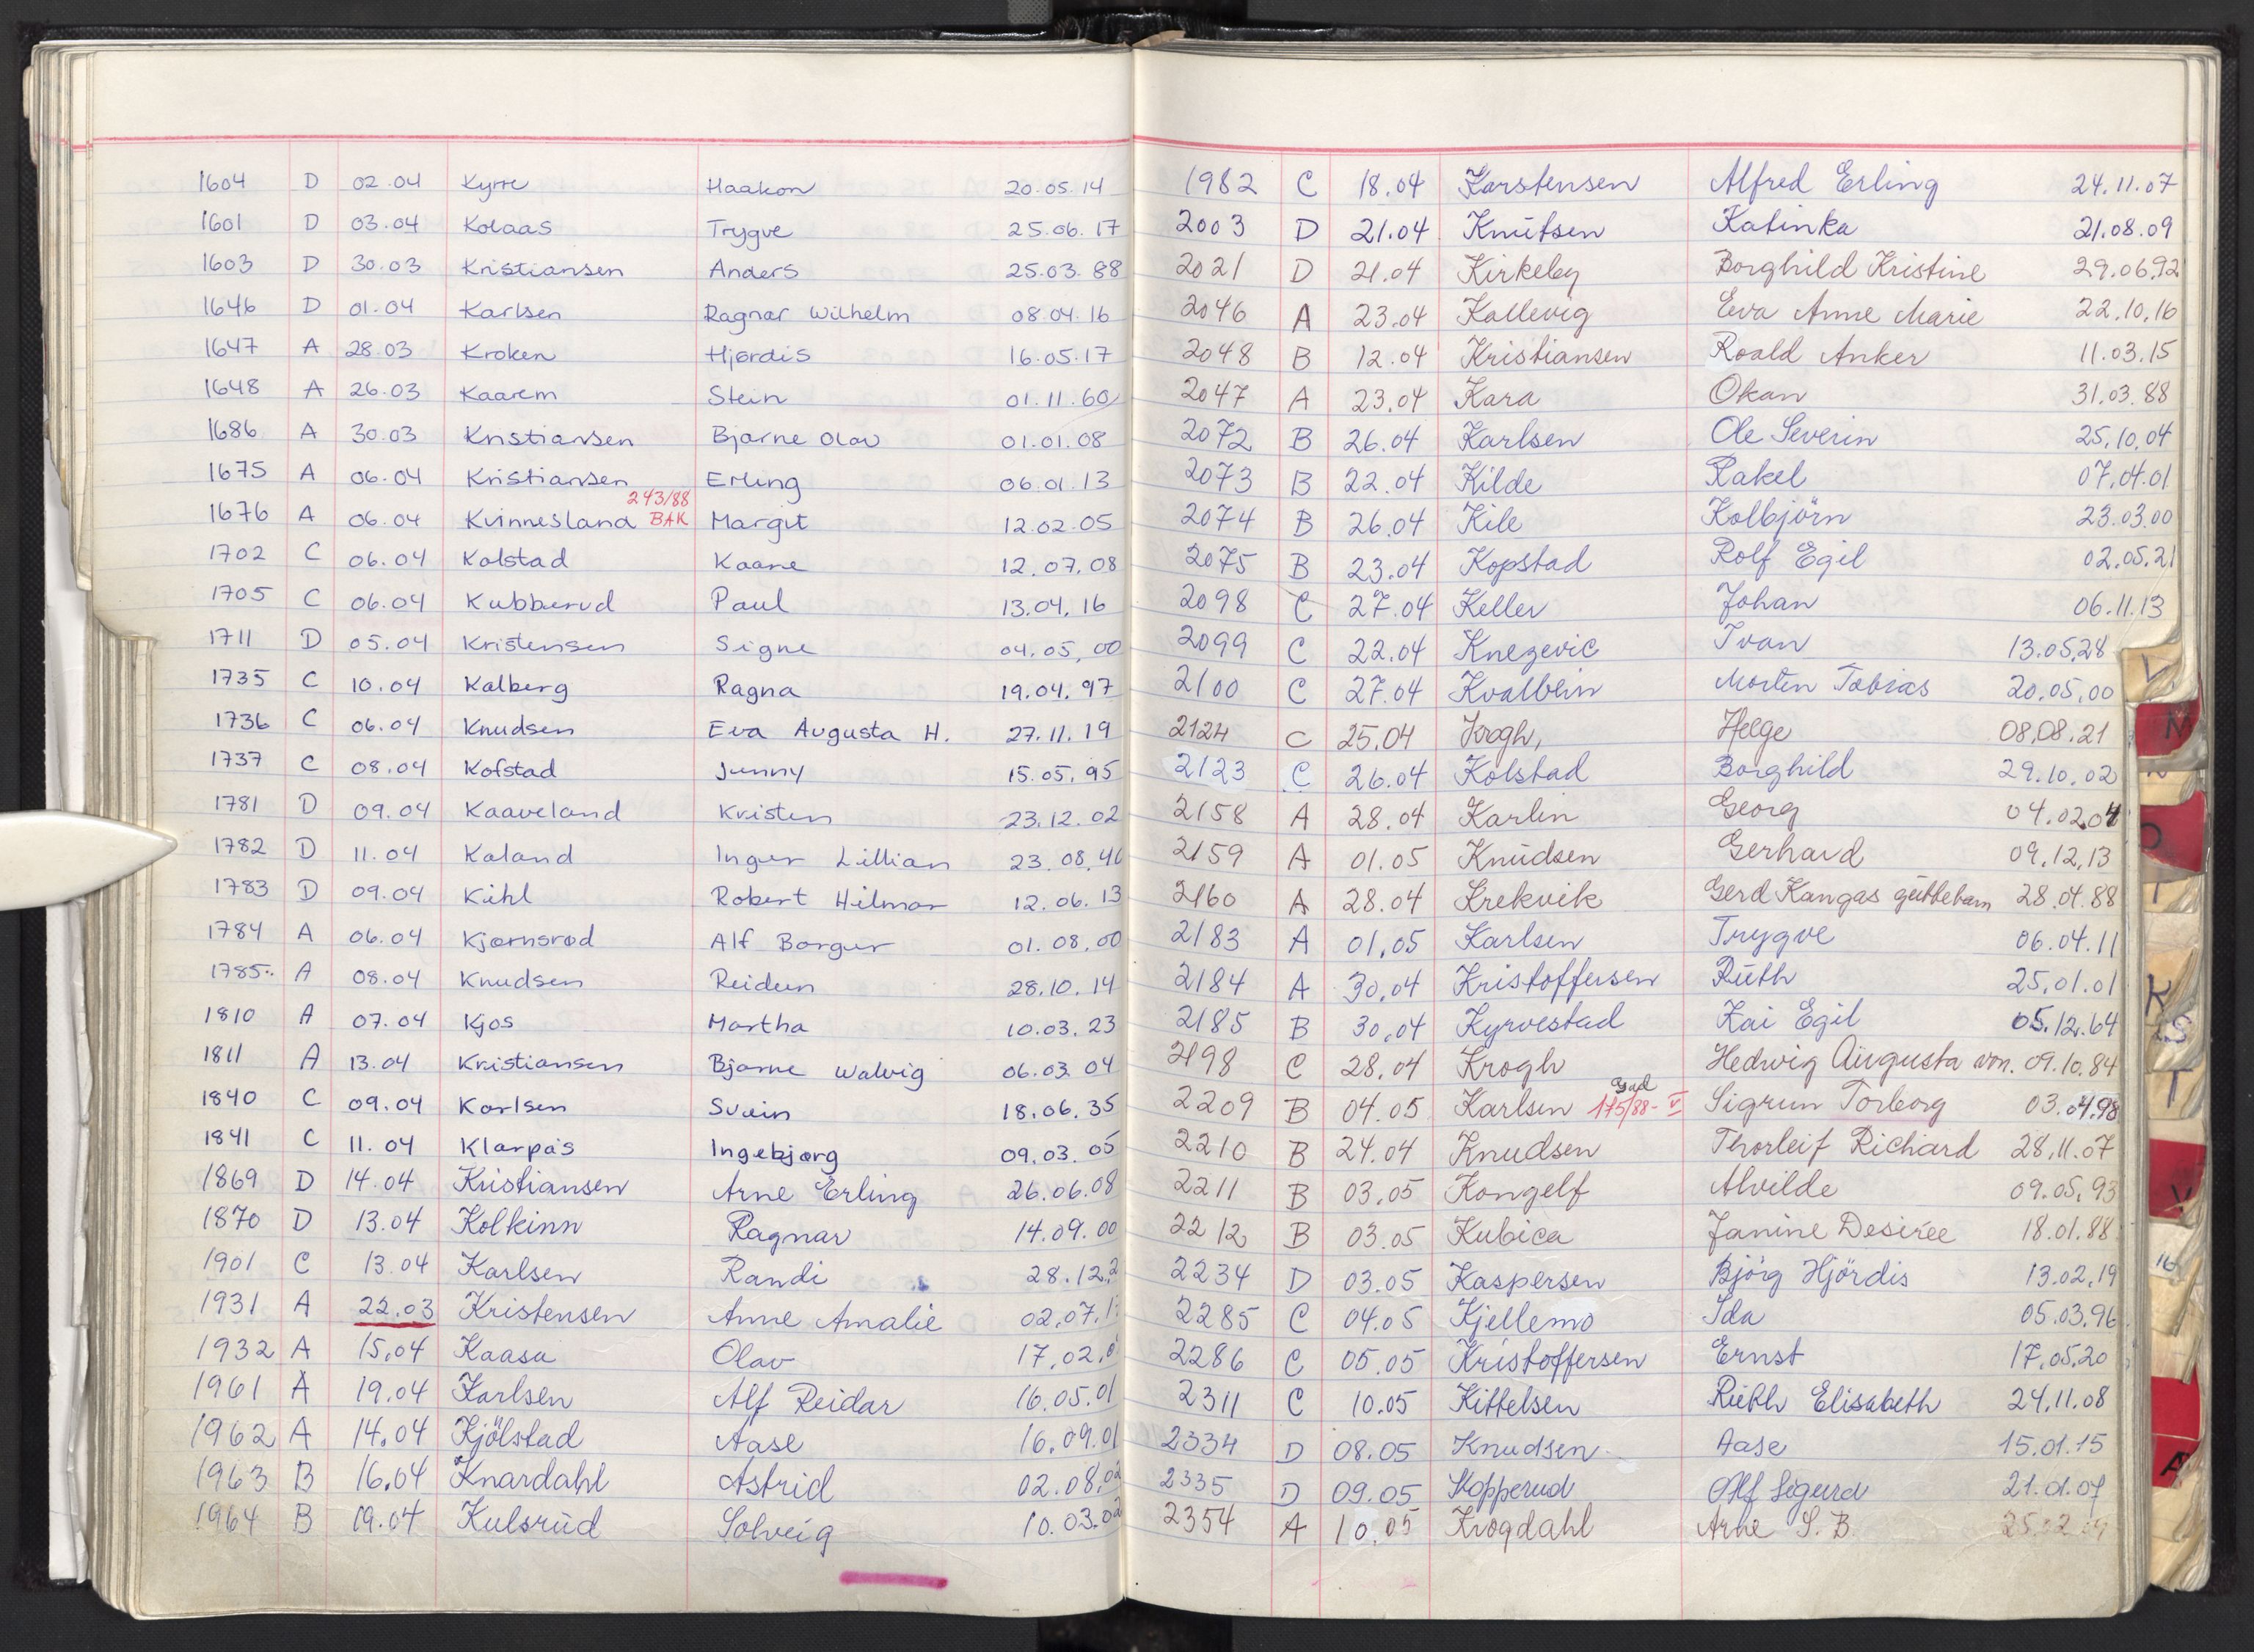 1604 D 02.04 Kyrre Haakon 20.05.14
1601 D 03.04 Kolaas Trygve 25.06.17
1603 D 30.03 Kristiansen Anders 25.03.88
1646 D 01.04 Karlsen Ragnar Wilhelm 08.04.16
1647 A 28.03 Kroken Hjørdis 16.05.17
1648 A 26.03 Kaarem Stein 01.11.60
1686 A 30.03 Kristiansen Bjarne Olav 01.01.08
1675 A 06.04 Kristiansen Erling 06.01.13
243/88
1676 A 06.04 Kvinnesland BAK Margit 12.02.05
1702 C 06.04 Kolstad Kaare 12.07.08
1705 C 06.04 Kubberud Paul 13.04.16
1711 D 05.04 Kristensen Signe 04.05.00
1735 C 10.04 Kalberg Ragna 19.04.97
1736 C 06.04 Knudsen Eva Augusta H. 27.11.19
1737 C 08.04 Kofstad Jenny 15.05.95
1781 D 09.04 Kaaveland Kristen 23.12.02
1782 D 11.04 Kaland Inger Lillian 23.08.46
1783 D 09.04 Kihl Robert Hilmar 12.06.13
1784 A 06.04 Kjørnsrød Alf Borger 01.08.00
1785 A 08.04 Knudsen Reidun 28.10.14
1810 A 07.04 Kjos Martha 10.03.23
1811 A 13.04 Kristiansen Bjarne Walvig 06.03.04
1840 C 09.04 Karlsen Svein 18.06.35
1841 C 11.04 Klarpås Ingebjørg 09.03.05
1869 D 14.04 Kristiansen Arne Erling 26.06.08
1870 D 13.04 Kolkinn Ragnar 14.09.00
1901 C 13.04 Karlsen Randi 28.12.2
1931 A 22.03 Kristensen Anne Amalie 02.07.1
1932 A 15.04 Kaasa Olav 17.02.0
1961 A 19.04 Karlsen Alf Reidar 16.05.01
1962 A 14.04 Kjölstad Aase 16.09.01
1963 B 16.04 Knardahl Astrid 02.08.02
1964 B 19.04 Kulsrud Solveig 10.03.02
1982 C 18.04 Karstensen Alfred Erling 24.11.07
2003 D 21.04 Knutsen Katinka 21.08.09
2021 D 21.04 Kirkeby Borghild Kristine 29.06.92
2046 A 23.04 Kallevig Eva Anne Marie 22.10.16
2048 B 12.04 Kristiansen Roald Anker 11.03.15
2047 A 23.04 Kara Okan 31.03.88
2072 B 26.04 Karlsen Ole Severin 25.10.04
2073 B 22.04 Kilde Rakel 07.04.01
2074 B 26.04 Kile Kolbjörn 23.03.00
2075 B 23.04 Kopstad Rolf Egil 02.05.21
2098 C 27.04 Keller Johan 06.11.13
2099 C 22.04 Knezevic Ivan 13.05.28
2100 C 27.04 Kvalbein Morten Tobias 20.05.00
2124 C 25.04 Krogh, Helge 08.08.21
2123 C 26.04 Kolstad Borghild 29.10.02
2158 A 28.04 Karlin Georg 04.02.04
2159 A 01.05 Knudsen Gerhard 09.12.13
2160 A 28.04 Krekvik Gerd Kangas guttebarn 28.04.88
2183 A 01.05 Karlsen Trygve 06.04.11
2184 A 30.04 Kristoffersen Ruth 25.01.01
2185 B 30.04 Kyrvestad Kai Egil 05.12.64
2198 C 28.04 Krogh Hedwig Augusta von. 09.10.84
2209 B 04.05 Karlsen 175/88-V Sigrun Torborg 03.04.98
2210 B 24.04 Knudsen Thorleif Richard 28.11.07
2211 B 03.05 Kongelf Alvilde 09.05.93
2212 B 03.05 Kubica Janine Desirée 18.01.88
2234 D 03.05 Kaspersen Bjørg Hjördis 13.02.19
2285 C 04.05 Kjellemo Ida 05.03.96
2286 C 05.05 Kristoffersen Ernst 17.05.20
2311 C 10.05 Kittelsen Ruth Elisabeth 24.11.08
2334 D 08.05 Knudsen Aase 15.01.15
2335 D 09.05 Kopperud Alf Sigurd 21.01.07
2354 A 10.05 Krogdahl Arne S.B.